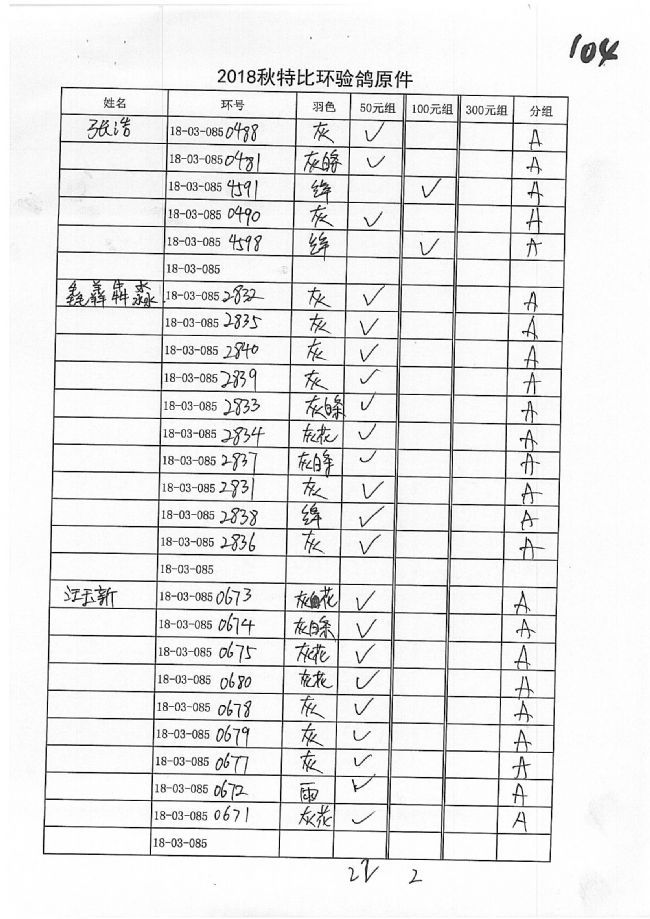 104
2018秋特比环验鸽原件
姓名 环号 羽色 50元组 100元组 300元组 分组
张浩 18-03-085 0488 灰 ✓ A
18-03-085 0481 灰白条 ✓ A
18-03-085 4591 绛 ✓ A
18-03-085 0490 灰 ✓ A
18-03-085 4598 绛 ✓ A
18-03-085
鱻羴犇淼 18-03-085 2832 灰 ✓ A
18-03-085 2835 灰 ✓ A
18-03-085 2840 灰 ✓ A
18-03-085 2839 灰 ✓ A
18-03-085 2833 灰白条 ✓ A
18-03-085 2834 灰花 ✓ A
18-03-085 2837 灰白条 ✓ A
18-03-085 2831 灰 ✓ A
18-03-085 2838 绛 ✓ A
18-03-085 2836 灰 ✓ A
18-03-085
江玉新 18-03-085 0673 灰白花 ✓ A
18-03-085 0674 灰白条 ✓ A
18-03-085 0675 灰花 ✓ A
18-03-085 0680 灰花 ✓ A
18-03-085 0678 灰 ✓ A
18-03-085 0679 灰 ✓ A
18-03-085 0677 灰 ✓ A
18-03-085 0672 雨 ✓ A
18-03-085 0671 灰花 ✓ A
18-03-085
2